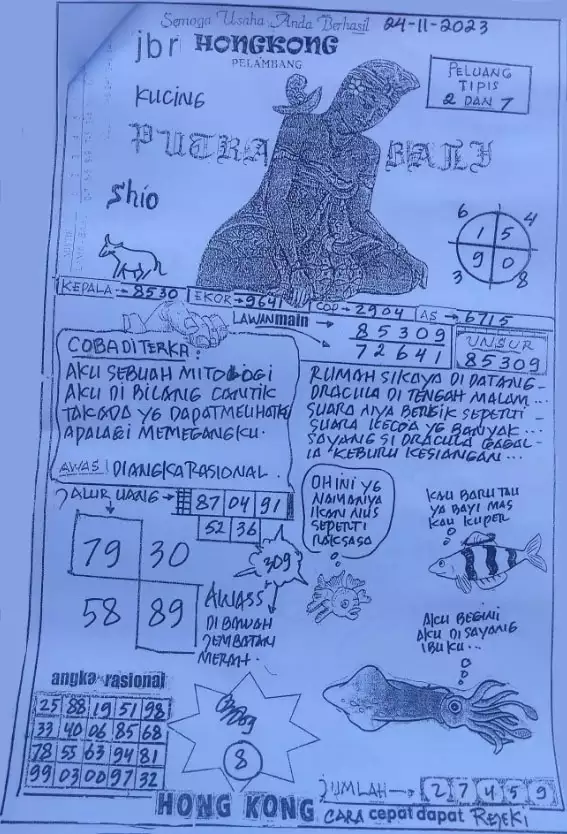 Semoga Usaha Anda Berhasil 24-11-2023
jbr HONGKONG
PELAMBANG
PELUANG
TIPIS
2 DAN 7
KUCING
PUTRA BALI
Shio
6 4
1 5
9 0
3 8
KEPALA → 8530 EKOR → 9641 COP → 2904 AS → 6715
LAWAN main → 85309
72641
UNSUR
85309
COBA DI TERKA:
AKU SEBUAH MITOLOGI
AKU DI BILANG CANTIK
TAKADA YG DAPAT MELIHATKU
APALAGI MEMEGANGKU.
AWAS! DIANGKA RASIONAL.
RUMAH SIKAYA DI DATANG-
DRACULA DI TENGAH MALAM...
SUARA NYA BERISIK SEPERTI-
SUARA KECOA YG BANYAK...
SAYANG SI DRACULA GAGAL-
IA KEBURU KESIANGAN...
JALUR UANG → 87 04 91
52 36
79 30
58 89
309
AWASS
DI BAWAH
JEMBATAN
MERAH.
OH INI YG
NAMANYA
IKAN NUS
SEPERTI
RAKSASA
KAU BARU TAU
YA BAYI MAS
KAU KUPER
AKU BEGINI
AKU DI SAYANG
IBUKU...
angka rasional
25 88 19 51 98
33 40 06 85 68
78 55 63 94 81
99 03 00 97 32
8
JUMLAH → 2 7 4 5 9
HONG KONG CARA cepat dapat REJEKI